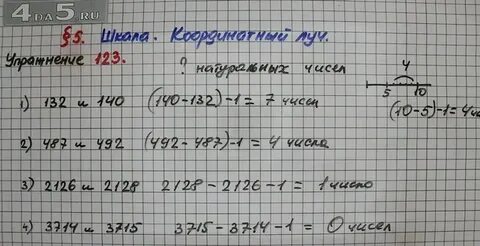 4DA5.RU
§5. Шкала. Координатный луч.
Упражнение 123. ? натуральных чисел
4
5 10
(10-5)-1=4чис
1) 132 и 140 (140-132)-1= 7 чисел
2) 487 и 492 (492-487)-1= 4 числа
3) 2126 и 2128 2128-2126-1= 1 число
4) 3714 и 3715 3715-3714-1= 0 чисел